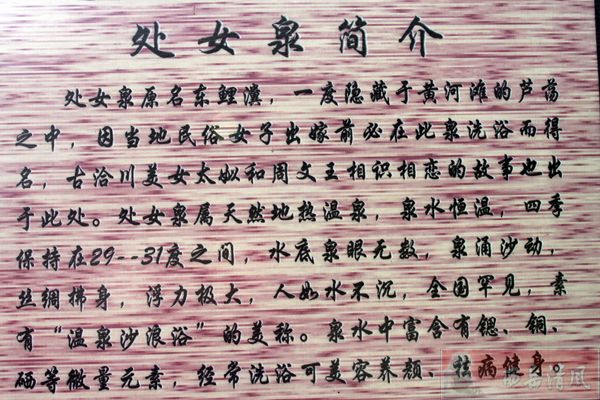 处女泉简介
处女泉原名东鲤瀵，一度隐藏于黄河滩的芦荡
之中，因当地民俗女子出嫁前必在此泉洗浴而得
名，古洽川美女太姒和周文王相识相恋的故事也出
于此处。处女泉属天然地热温泉，泉水恒温，四季
保持在29--31度之间，水底泉眼无数，泉涌沙动，
丝绸拂身，浮力极大，人如水不沉，全国罕见，素
有“温泉沙浪浴”的美称。泉水中富含有锶、铜、
硒等微量元素，经常洗浴可美容养颜、祛病健身。
清风